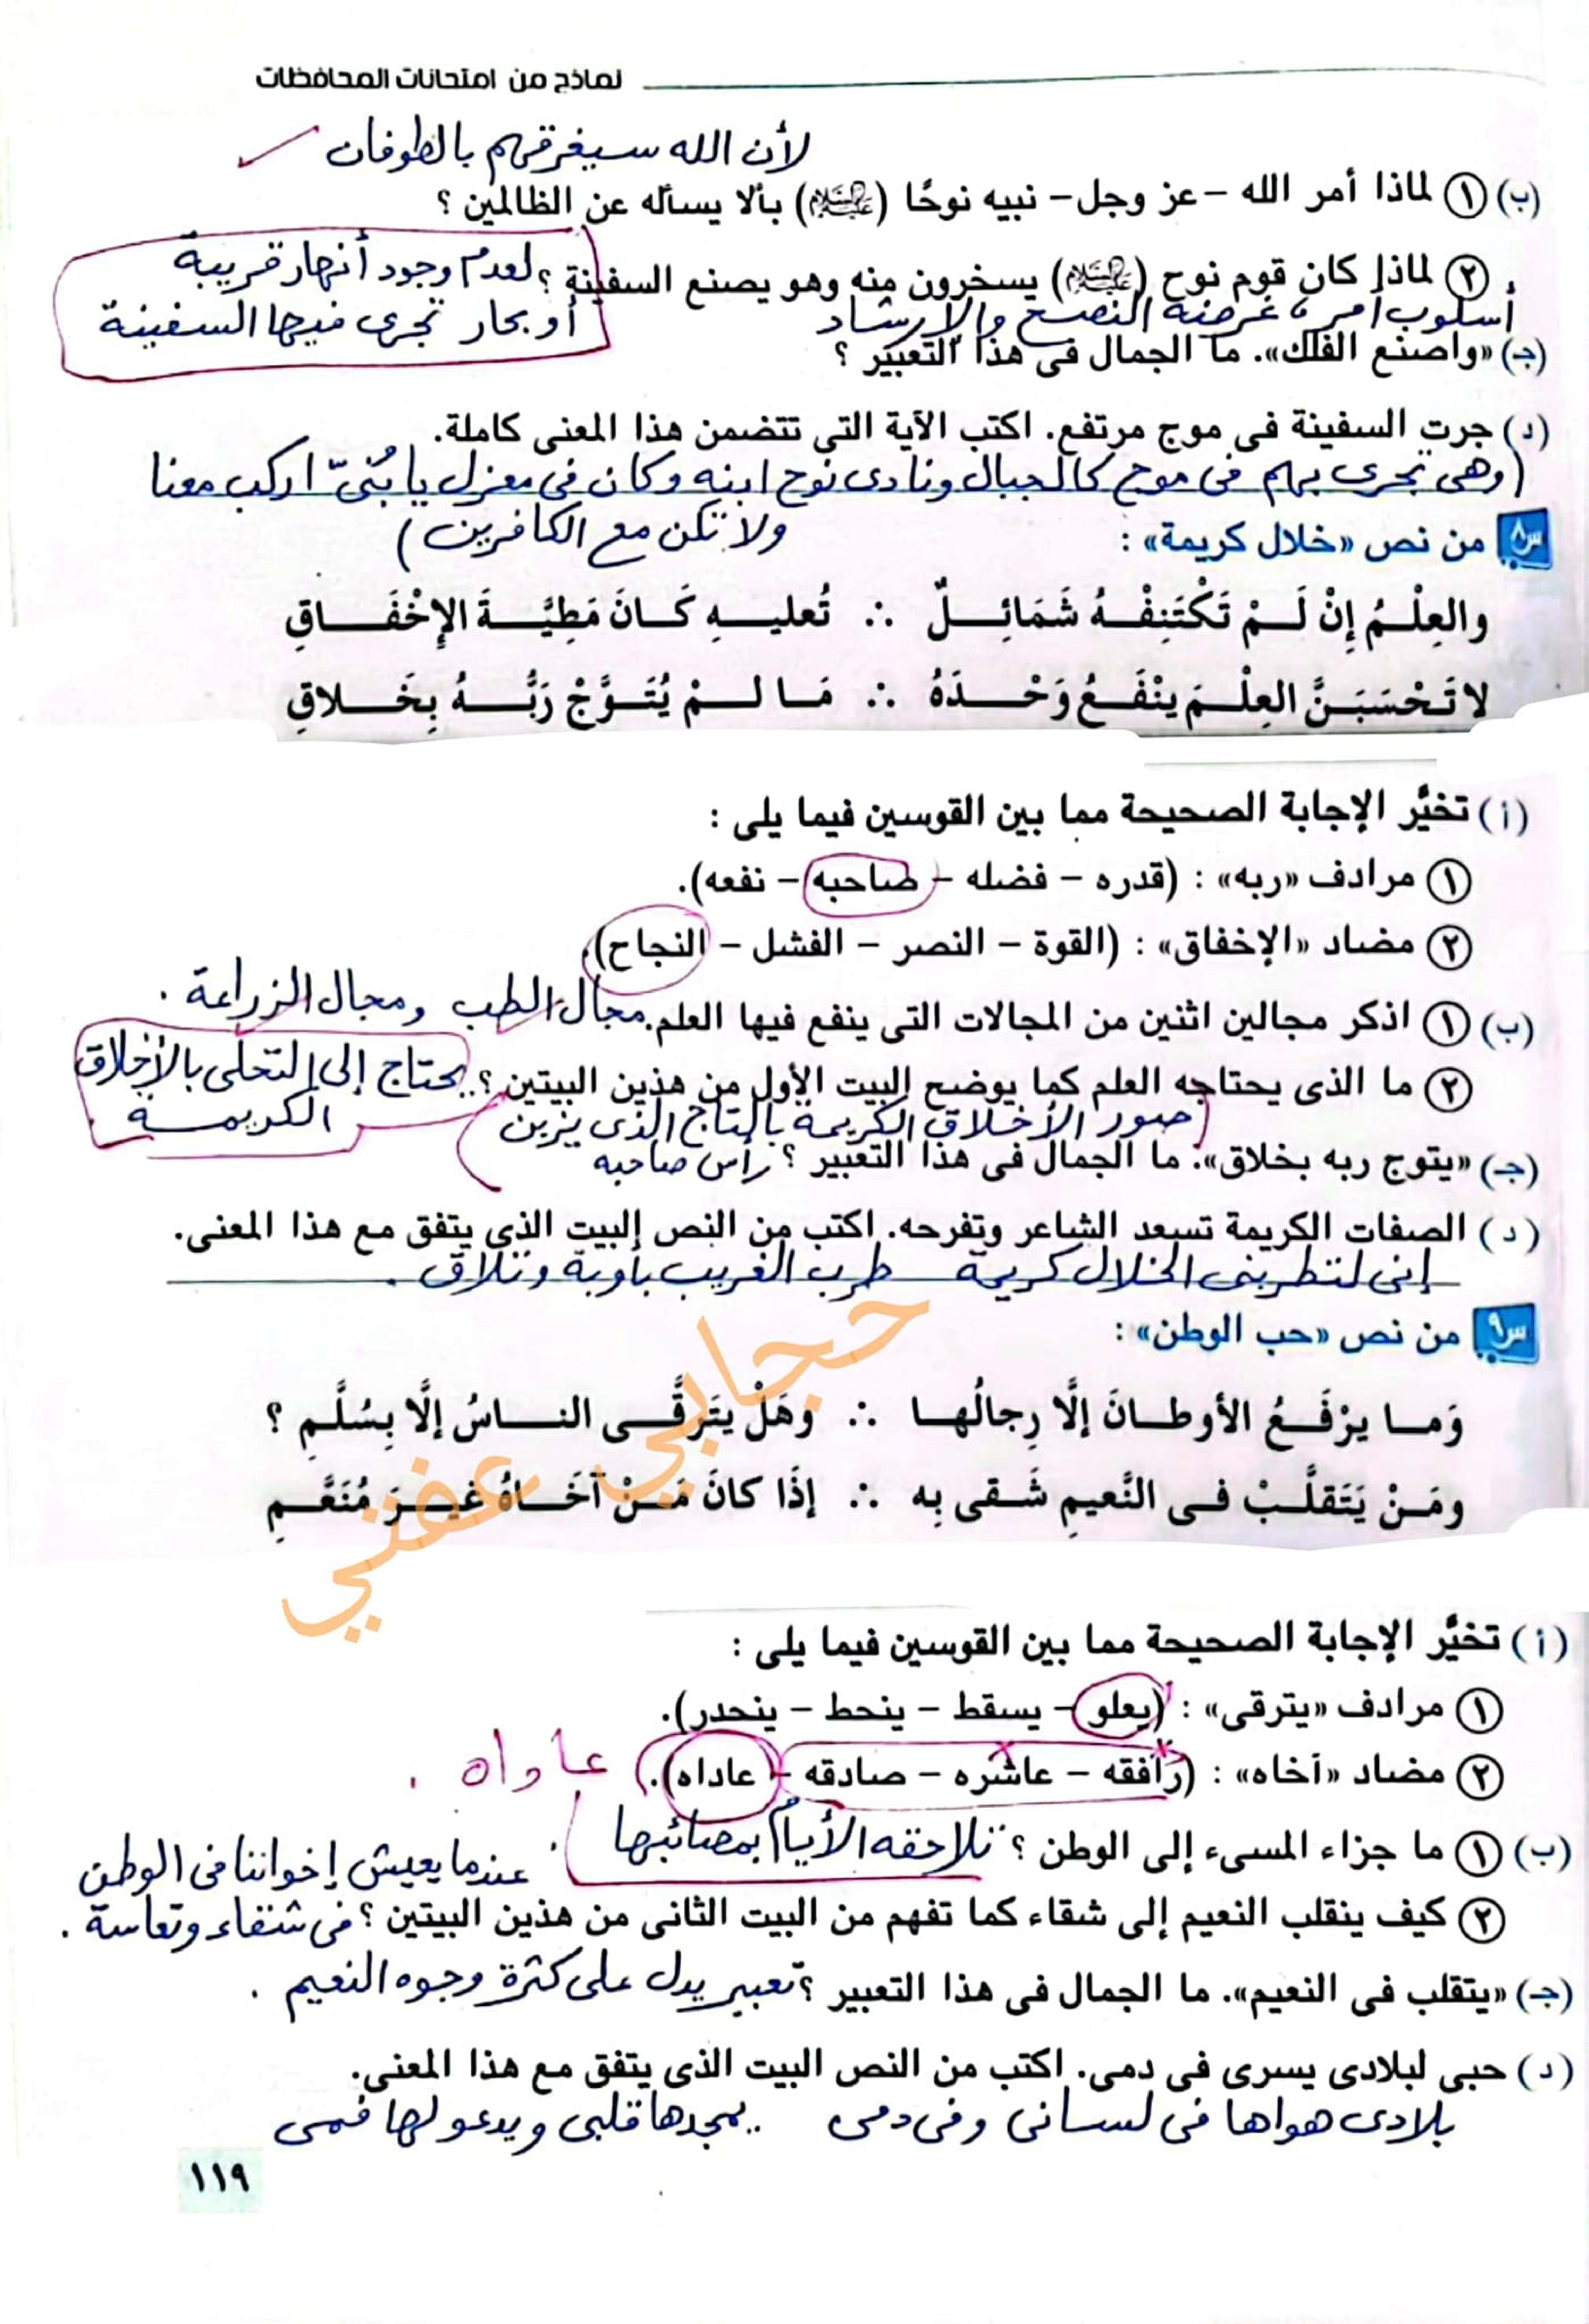 نماذج من امتحانات المحافظات
لأن الله سيغرقهم بالطوفان
(ب) ١ لماذا أمر الله -عز وجل- نبيه نوحًا (عليه السلام) بألا يسأله عن الظالمين ؟
٢ لماذا كان قوم نوح (عليه السلام) يسخرون منه وهو يصنع السفينة ؟ لعدم وجود أنهار قريبة
أو بحار تجرى فيها السفينة
أسلوب أمر، غرضه النصح والإرشاد
(جـ) «واصنع الفلك». ما الجمال فى هذا التعبير ؟
(د) جرت السفينة فى موج مرتفع. اكتب الآية التى تتضمن هذا المعنى كاملة.
(وهى تجرى بهم فى موج كالجبال ونادى نوح ابنه وكان فى معزل يا بُنىّ اركب معنا
ولا تكن مع الكافرين)
س٨ من نص «خلال كريمة» :
والعِلْمُ إِنْ لَمْ تَكْتَنِفْهُ شَمَائِلٌ ∴ تُعليهِ كَانَ مَطِيَّةَ الإِخْفَاقِ
لا تَحْسَبَنَّ العِلْمَ يَنْفَعُ وَحْدَهُ ∴ مَا لمْ يُتَوَّجْ رَبُّهُ بِخَلاقِ
(أ) تخيَّر الإجابة الصحيحة مما بين القوسين فيما يلى :
١ مرادف «ربه» : (قدره - فضله - صاحبه - نفعه).
٢ مضاد «الإخفاق» : (القوة - النصر - الفشل - النجاح).
(ب) ١ اذكر مجالين اثنين من المجالات التى ينفع فيها العلم. مجال الطب ومجال الزراعة .
٢ ما الذى يحتاجه العلم كما يوضح البيت الأول من هذين البيتين ؟ يحتاج إلى التحلى بالأخلاق
الكريمة
(صور الأخلاق الكريمة بالتاج الذى يزين
(جـ) «يتوج ربه بخلاق». ما الجمال فى هذا التعبير ؟ رأس صاحبه
(د) الصفات الكريمة تسعد الشاعر وتفرحه. اكتب من النص البيت الذى يتفق مع هذا المعنى.
إنى لتطربنى الخلال كريمة طرب الغريب بأوبة وتلاق .
حجابي عفتي
س٩ من نص «حب الوطن» :
وَما يرْفَعُ الأوطانَ إلَّا رِجالُها ∴ وهَلْ يتَرقَّى الناسُ إلَّا بِسُلَّمِ ؟
ومَنْ يَتَقلَّبْ فى النَّعيمِ شَقى بِه ∴ إذَا كانَ مَنْ آخَاهُ غيرَ مُنَعَّمِ
(أ) تخيَّر الإجابة الصحيحة مما بين القوسين فيما يلى :
١ مرادف «يترقى» : (يعلو - يسقط - ينحط - ينحدر).
٢ مضاد «آخاه» : (رافقه - عاشره - صادقه - عاداه). عاداه .
(ب) ١ ما جزاء المسىء إلى الوطن ؟ تلاحقه الأيام بمصائبها .
عندما يعيش إخواننا فى الوطن
٢ كيف ينقلب النعيم إلى شقاء كما تفهم من البيت الثانى من هذين البيتين ؟ فى شقاء وتعاسة .
(جـ) «يتقلب فى النعيم». ما الجمال فى هذا التعبير ؟ تعبير يدل على كثرة وجوه النعيم .
(د) حبى لبلادى يسرى فى دمى. اكتب من النص البيت الذى يتفق مع هذا المعنى.
بلادى هواها فى لسانى وفى دمى .. يمجدها قلبى ويدعو لها فمى
١١٩